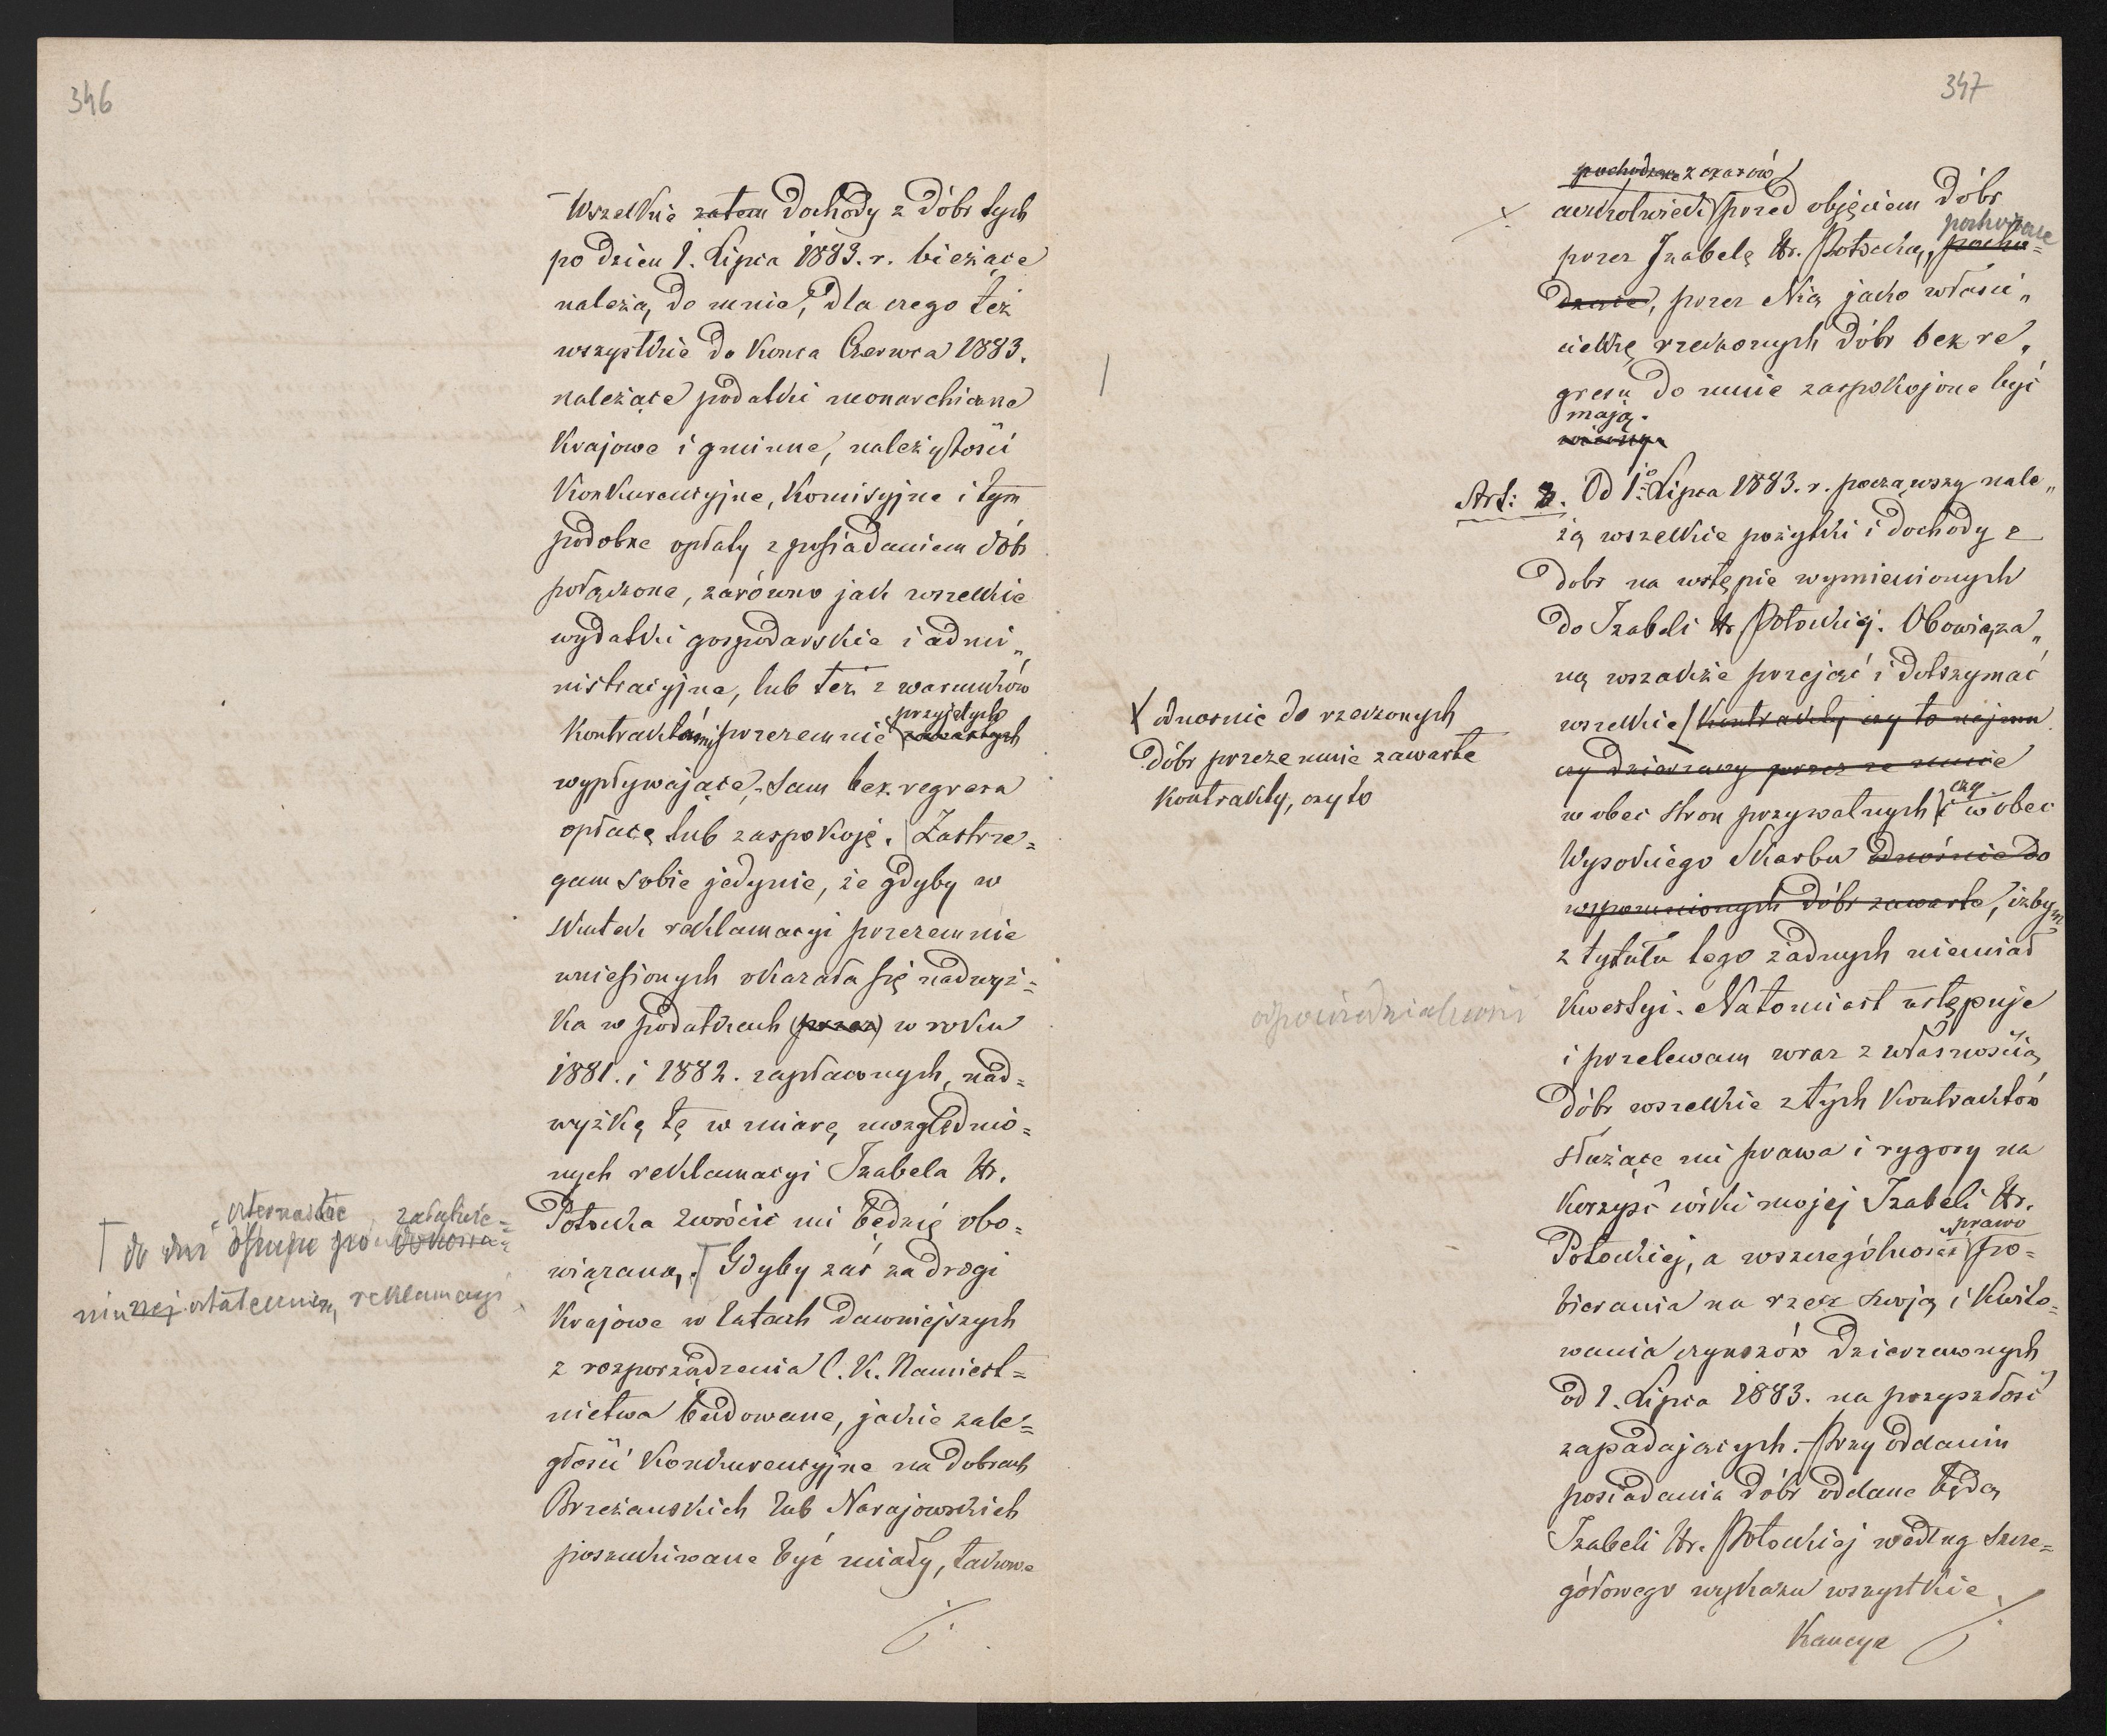 346
Wszelkie zatem dochody z dóbr tych
po dzień 1. Lipca 1883. r. bieżące
należą do mnie, dla czego też
wszystkie do końca Czerwca 1883.
należące podatki monarchiczne
krajowe i gminne, należytości
konkurencyjne, komisyjne i tym
podobne opłaty z posiadaniem dóbr
połączone, zarówno jak wszelkie
wydatki gospodarskie i admi„
nistracyjne, lub też z warunków
przyjętych
kontraktami przezemnie zawartych
wypływające, sam bez regresu
opłacę lub zaspokoję. Zastrze=
gam sobie jedynie, że gdyby w
skutek reklamacyi przezemnie
wniesionych okazała się nadwyż=
ka w podatkach (przez) w roku
1881. i 1882. zapłaconych, nad=
wyżkę tę w miarę uwzględnio=
nych reklamacyi Izabela Hr.
Potocka zwrócić mi będzie obo=
wiązaną. Gdyby zaś za drogi
krajowe w latach dawniejszych
z rozporządzenia C. K. Namiest=
nictwa budowane, jakie zale=
głości konkurencyjne na dobrach
Brzeżańskich lub Narajowskich
poszukiwane być miały, takowe
./.
czternastu załatwie=
do dni po dokona=
niu ostatecznem reklamacyi
347
pochodzące z czasów
aczkolwiek przed objęciem dóbr
pochodzące
przez Izabelę Hr. Potocką, pocho=
dzące, przez Nią jako właści„
cielkę rzeczonych dóbr bez re„
gresu do mnie zaspokojone być
mają.
Art: 3. Od 1go Lipca 1883. r. począwszy nale„
żą wszelkie pożytki i dochody z
dobr na wstępie wymienionych
do Izabeli Hr Potockiej. Obowiąza„
ną wszakże przejąć i dotrzymać
wszelkie kontrakty czy to najmu
czy dzierżawy przezemnie
czy
wobec stron prywatnych i wobec
Wysokiego Skarbu odnośnie do
wspomnionych dóbr zawarte, iżbym
z tytułu tego żadnych niemiał
kwestyi. Natomiast ustępuję
i przelewam wraz z własnością
dóbr wszelkie z tych kontraktów
służące mi prawa i rygory na
korzyść córki mojej Izabeli Hr.
prawo
Potockiej, a wszczególności po=
bierania na rzecz swoją i kwito=
wania czynszów dzierżawnych
od 1. Lipca 1883. na przyszłość
zapadających. Przy oddaniu
posiadania dóbr oddane będą
Izabeli Hr. Potockiej według szcze=
gółowego wykazu wszystkie
kaucye ./.
X odnośnie do rzeczonych
dóbr przezemnie zawarte
kontrakty, czy to
odpowiedzialności